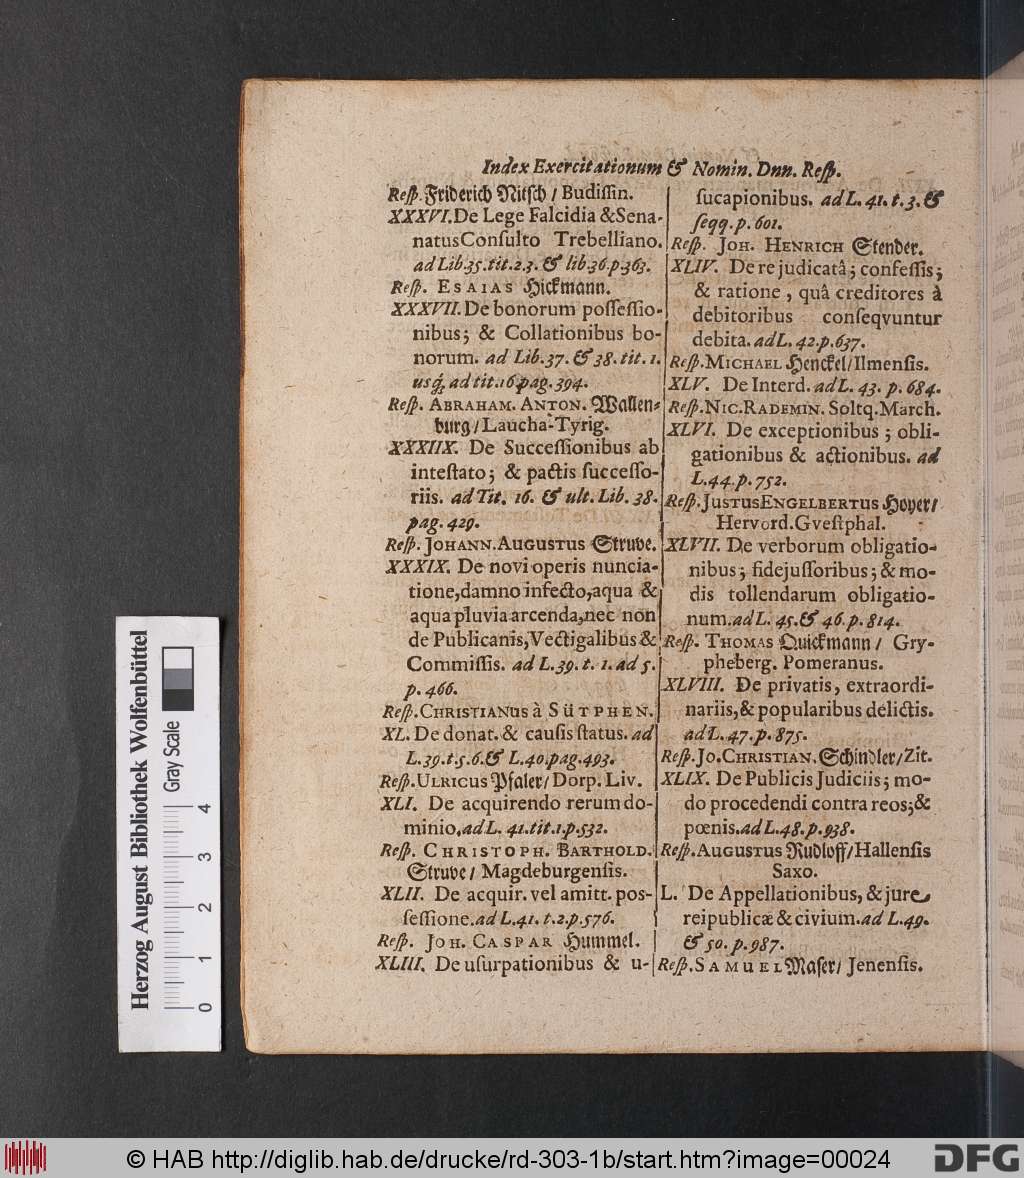 Index Exercitationum & Nomin. Dnn. Resp.
Resp. Friderich Nitsch / Budissin.
XXXVI. De Lege Falcidia & Sena-
natusConsulto Trebelliano.
ad Lib. 35. tit. 2. 3. & lib. 36. p. 363.
Resp. ESAIAS Hickmann.
XXXVII. De bonorum possessio-
nibus; & Collationibus bo-
norum. ad Lib. 37. & 38. tit. 1.
usq; ad tit. 16. pag. 394.
Resp. ABRAHAM. ANTON. Wallen-
burg / Laucha-Tyrig.
XXXIIX. De Successionibus ab
intestato; & pactis successo-
riis. ad Tit. 16. & ult. Lib. 38.
pag. 429.
Resp. JOHANN. AUGUSTUS Struve.
XXXIX. De novi operis nuncia-
tione, damno infecto, aqua &
aqua pluvia arcenda, nec non
de Publicanis, Vectigalibus &
Commissis. ad L. 39. t. 1. ad 5.
p. 466.
Resp. CHRISTIANUS à SÜTPHEN.
XL. De donat. & causis status. ad
L. 39. t. 5. 6. & L. 40. pag. 493.
Resp. ULRICUS Pfaler / Dorp. Liv.
XLI. De acquirendo rerum do-
minio. ad L. 41. tit. 1. p. 532.
Resp. CHRISTOPH. BARTHOLD.
Struve / Magdeburgensis.
XLII. De acquir. vel amitt. pos-
sessione. ad L. 41. t. 2. p. 576.
Resp. JOH. CASPAR Hummel.
XLIII. De usurpationibus & u-
sucapionibus. ad L. 41. t. 3. &
seqq. p. 601.
Resp. JOH. HENRICH Stender.
XLIV. De re judicatâ; confessis;
& ratione, quâ creditores à
debitoribus conseqvuntur
debita. ad L. 42. p. 637.
Resp. MICHAEL Henckel / Ilmensis.
XLV. De Interd. ad L. 43. p. 684.
Resp. NIC. RADEMIN. Soltq. March.
XLVI. De exceptionibus; obli-
gationibus & actionibus. ad
L. 44. p. 752.
Resp. JUSTUS ENGELBERTUS Hoyer /
Hervord. Gvestphal.
XLVII. De verborum obligatio-
nibus; fidejussoribus; & mo-
dis tollendarum obligatio-
num. ad L. 45. & 46. p. 814.
Resp. THOMAS Quickmann / Gry-
pheberg. Pomeranus.
XLVIII. De privatis, extraordi-
nariis, & popularibus delictis.
ad L. 47. p. 875.
Resp. JO. CHRISTIAN. Schindler / Zit.
XLIX. De Publicis Judiciis; mo-
do procedendi contra reos; &
pœnis. ad L. 48. p. 938.
Resp. AUGUSTUS Rudloff / Hallensis
Saxo.
L. De Appellationibus, & jure
reipublicæ & civium. ad L. 49.
& 50. p. 987.
Resp. SAMUEL Maser / Jenensis.
Herzog August Bibliothek Wolfenbüttel
Gray Scale
0 1 2 3 4
© HAB http://diglib.hab.de/drucke/rd-303-1b/start.htm?image=00024
DFG